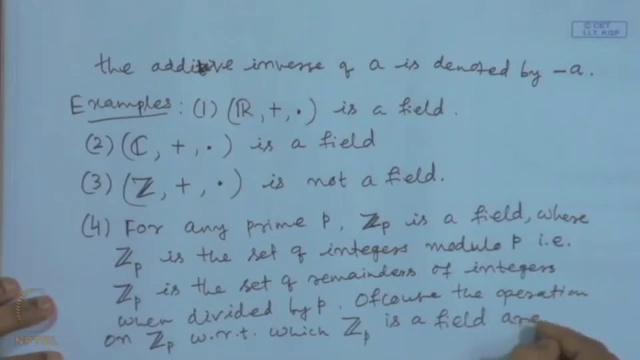 © CET
I.I.T. KGP
the additive inverse of a is denoted by -a.
Examples: (1) (ℝ, +, ·) is a field.
(2) (ℂ, +, ·) is a field
(3) (ℤ, +, ·) is not a field.
(4) For any prime p, ℤp is a field, where
ℤp is the set of integers modulo p i.e.
ℤp is the set of remainders of integers
when divided by p. Ofcourse the operation
on ℤp w.r.t. which ℤp is a field are
NPTEL